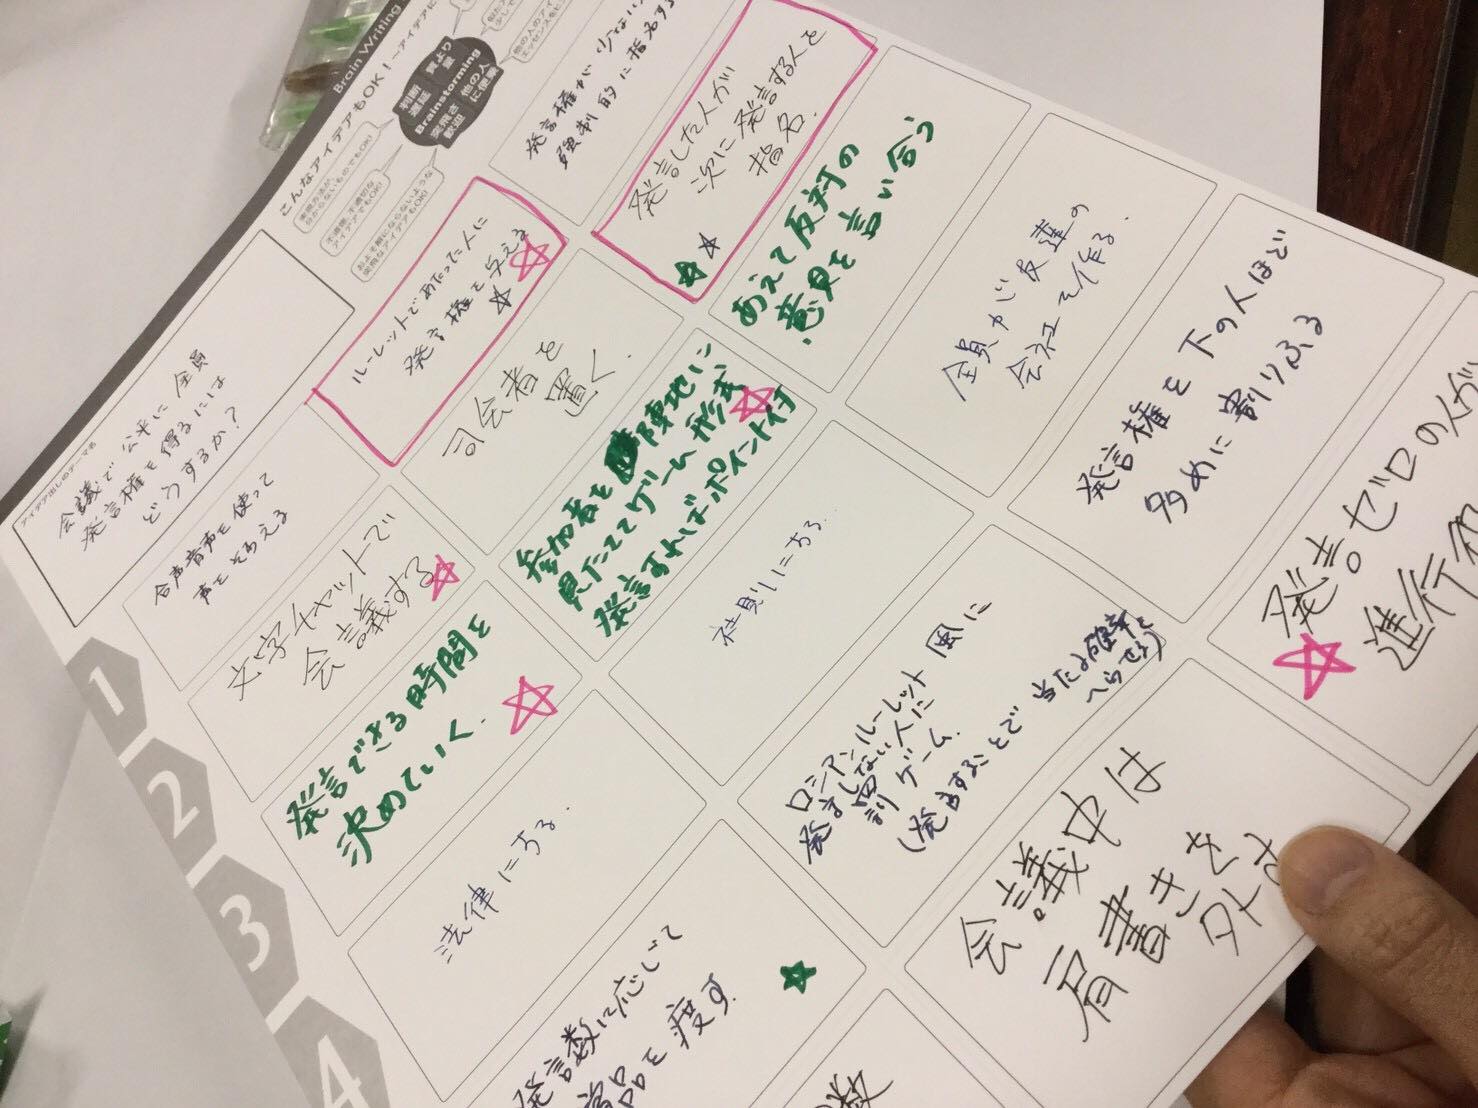 Brain Writing
こんなアイデアもOK！ーアイデアに
判断
遅延
質より
量
Brainstorming
突飛さ
歓迎
他の人
に便乗
実現方法が、
分からないものでもOK!
不道徳、不適切な
アイデアでもOK!
およそ解にならないような
突飛なアイデアもOK!
アイデア出しのテーマ名
会議で公平に全員
発言権を得るには
どうするか？
1
合声音声を使って
声をそろえる
ルーレットであたった人に
発言権を与える
発言権が少ない
強制的に指名する
2
文字チャットで
会議する
司会者を
置く.
発言した人が
次に発言する人を
指名.
3
発言できる時間を
決めていく.
参加者を陣地に
見たててゲーム形式
発言すればポイント付
あえて反対の
意見を言い合う
4
法律にする.
社員にする.
全員が友達の
会社を作る.
発言数に応じて
賞品を渡す.
ロシアンルーレット風に
発言しない人に
罰ゲーム.
(発言することで当たる確率を
へらせる)
発言権を下の人ほど
多めに割りふる
数
会議中は
肩書きを
外す
発言ゼロの人が
進行役